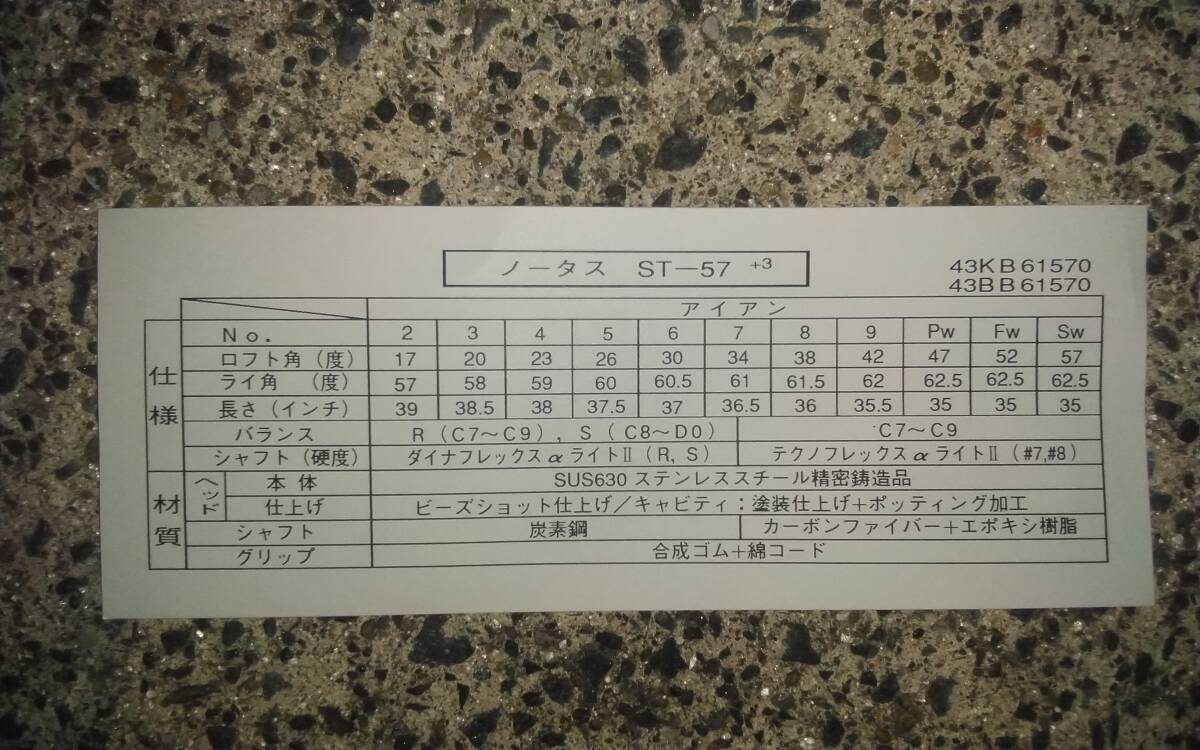 ノータス ST-57 +3
43KB61570
43BB61570
アイアン
仕様
No. 2 3 4 5 6 7 8 9 Pw Fw Sw
ロフト角(度) 17 20 23 26 30 34 38 42 47 52 57
ライ角 (度) 57 58 59 60 60.5 61 61.5 62 62.5 62.5 62.5
長さ(インチ) 39 38.5 38 37.5 37 36.5 36 35.5 35 35 35
バランス R(C7〜C9), S(C8〜D0) C7〜C9
シャフト(硬度) ダイナフレックスαライトⅡ(R, S) テクノフレックスαライトⅡ(#7,#8)
材質
ヘッド
本体 SUS630 ステンレススチール精密鋳造品
仕上げ ビーズショット仕上げ/キャビティ:塗装仕上げ+ポッティング加工
シャフト 炭素鋼 カーボンファイバー+エポキシ樹脂
グリップ 合成ゴム+綿コード